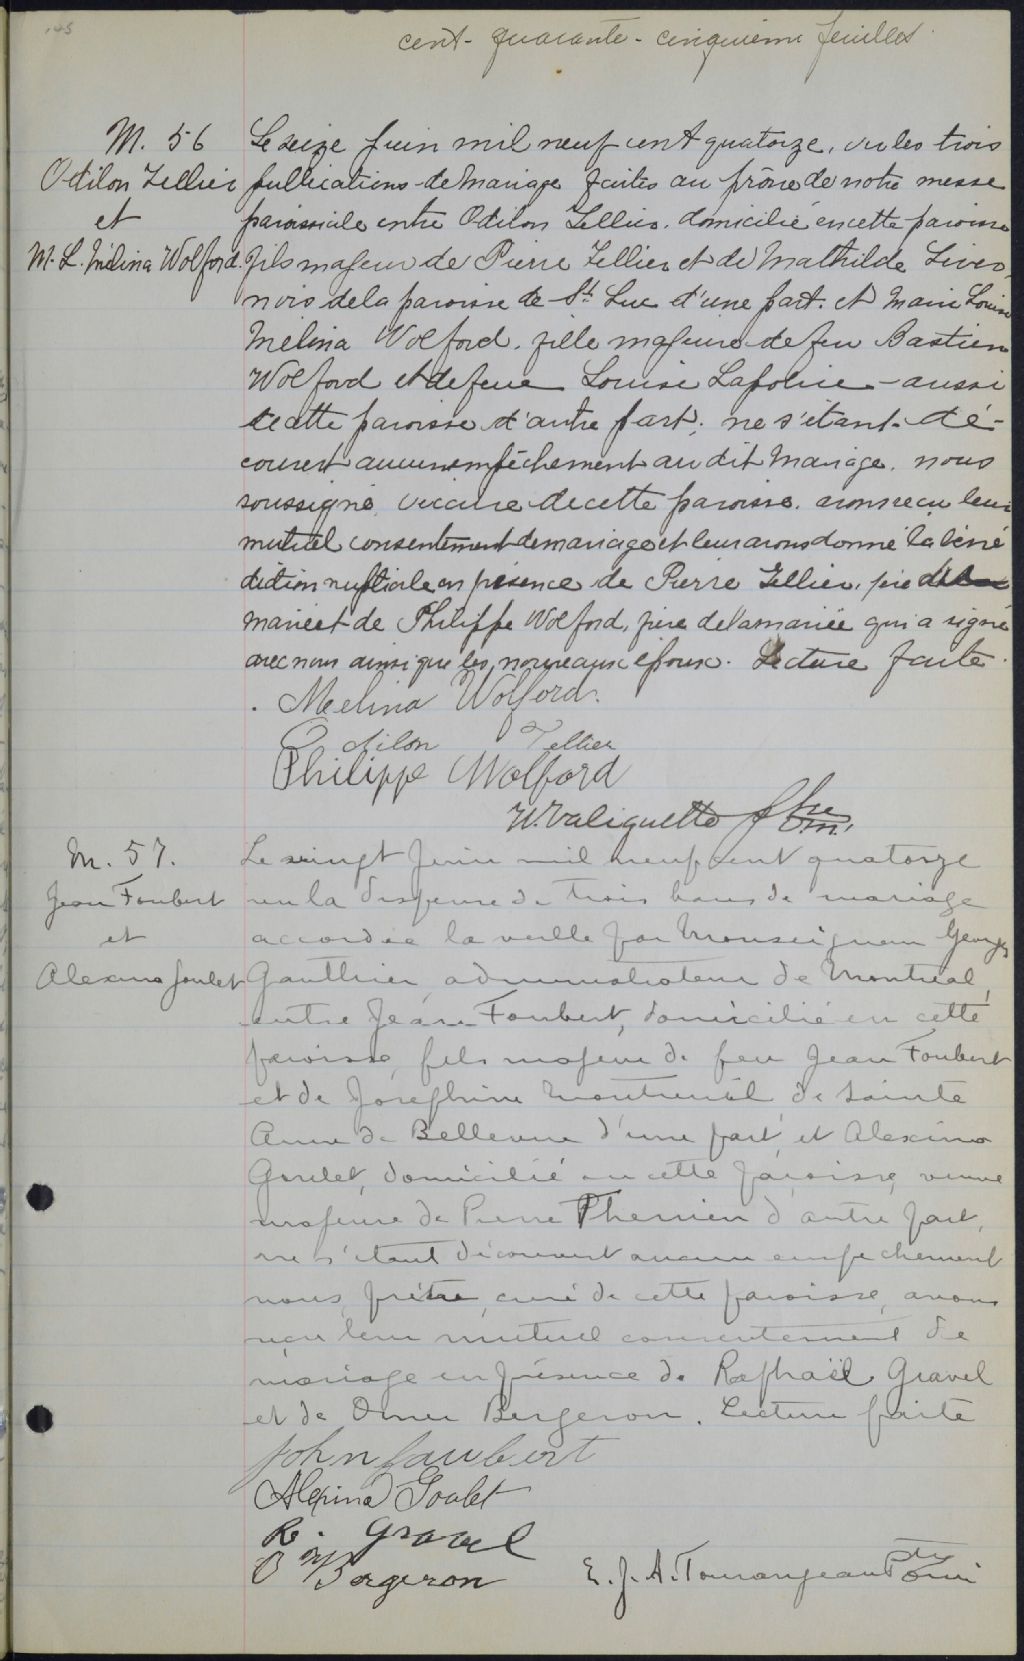 145
cent-quarante-cinquième feuillet
M. 56
Odilon Tellier
et
M. L. Mélina Wolford.
Le seize juin mil neuf cent quatorze, vu les trois
publications de mariage faites au prône de notre messe
paroissiale entre Odilon Tellier, domicilié en cette paroisse
fils majeur de Pierre Tellier et de Mathilde Liver
nois de la paroisse de St. Luc d'une part. et Marie Louise
Mélina Wolford, fille majeure de feu Bastien
Wolford et de feue Louise - aussi
de cette paroisse d'autre part; ne s'étant dé-
couvert aucun empêchement au dit mariage, nous
soussigné, vicaire de cette paroisse, avons reçu leur
mutuel consentement de mariage et leur avons donné la béné
diction nuptiale en présence de Pierre Tellier, père
marié et de Philippe Wolford, frère de la mariée qui a signé
avec nous ainsi que les nouveaux époux. Lecture faite.
Melina Wolford.
Odilon Tellier
Philippe Wolford
W. Valiquette ptre
M. 57.
Jean Foubert
et
Alexina Goulet
Le vingt juin mil neuf cent quatorze
vu la dispense de trois bans de mariage
accordée la veille par Monseigneur Georges
Gauthier, administrateur de Montréal,
entre Jean Foubert, domicilié en cette
paroisse, fils majeur de feu Jean Foubert
et de Joséphine Montreuil de Sainte
Anne de Bellevue d'une part, et Alexina
Goulet, domicilié en cette paroisse, veuve
majeure de Pierre Therrien d'autre part,
ne s'étant découvert aucun empêchement
nous, prêtre, curé de cette paroisse, avons
reçu leur mutuel consentement de
mariage en présence de Raphaël Gravel
et de Omer Bergeron. Lecture faite
John faubert
Alexina Goulet
R. Gravel
O Bergeron
E. J. A. Tourangeau Ptre